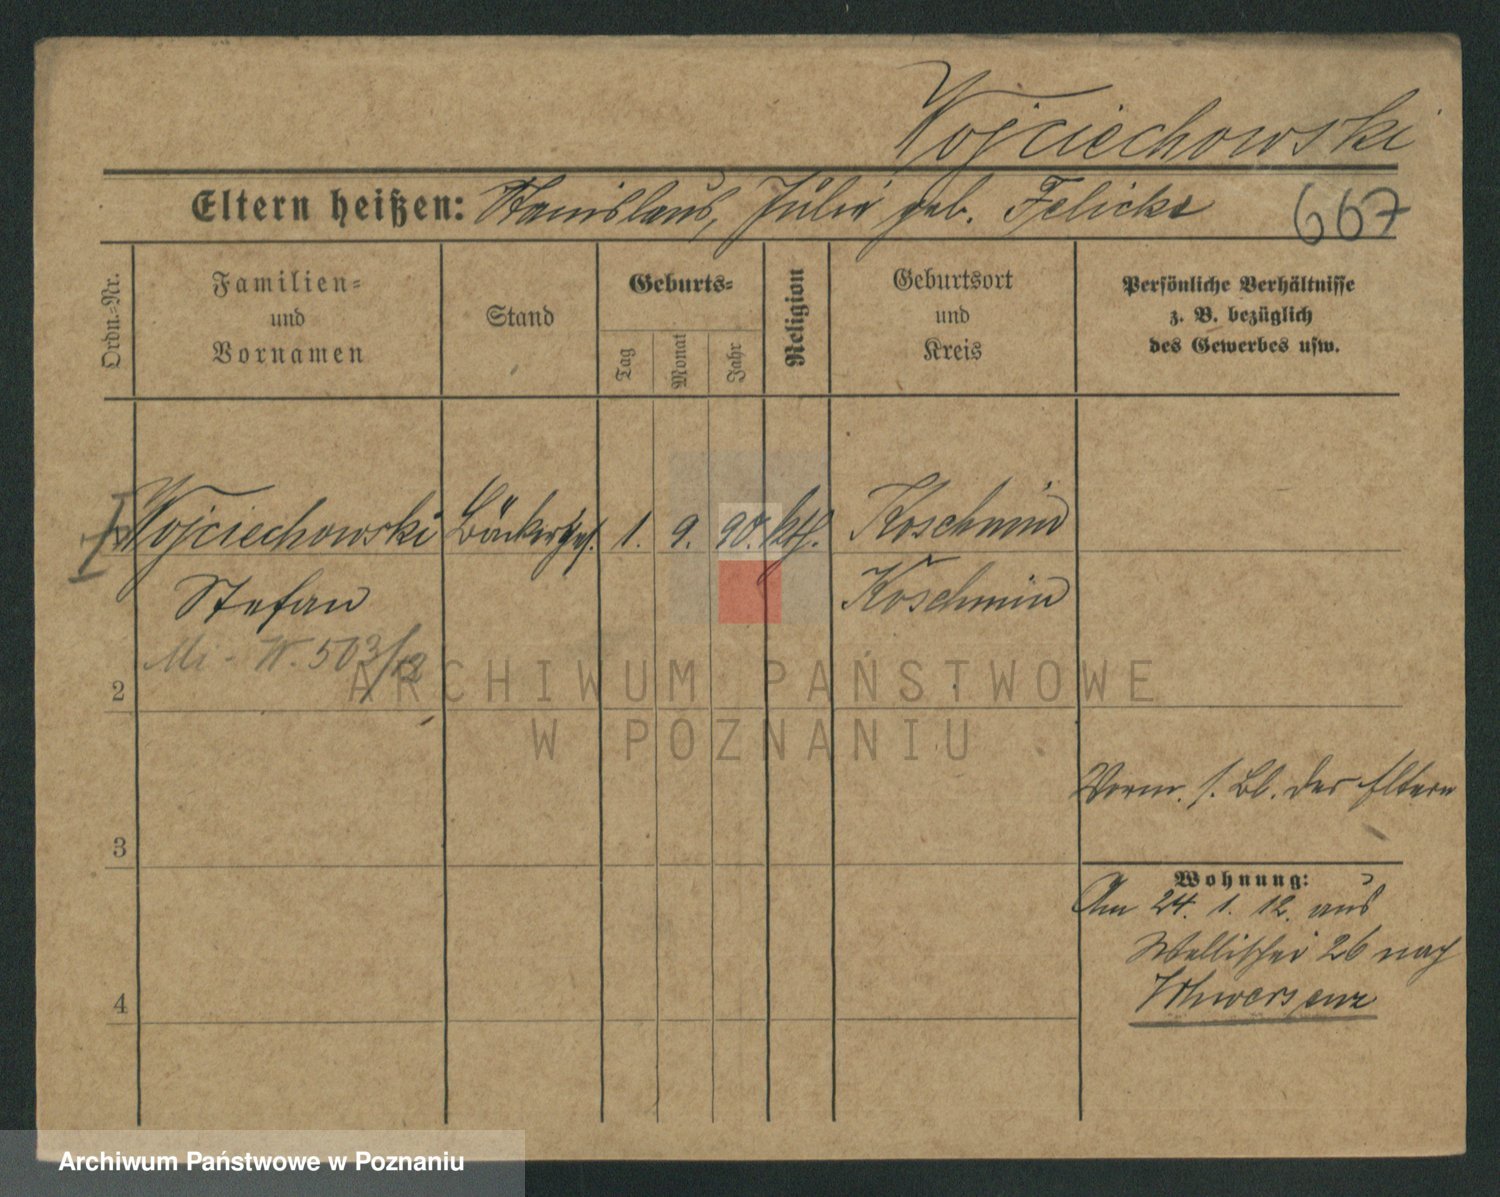 Wojciechowski
Eltern heißen: Stanislaus, Julie geb. Felicka
667
Ordn.-Nr.
Familien-
und
Vornamen
Stand
Geburts-
Tag
Monat
Jahr
Religion
Geburtsort
und
Kreis
Persönliche Verhältnisse
z. B. bezüglich
des Gewerbes usw.
Wojciechowski Bäckerges. 1. 9. 90. kth. Koschmin
Stefan Koschmin
Mi - W. 503/12
2
Verm. s. Bl. der Eltern
3
Wohnung:
Am 24. 1. 12. aus
Wallischei 26 nach
Schwersenz
4
ARCHIWUM PAŃSTWOWE
W POZNANIU
Archiwum Państwowe w Poznaniu